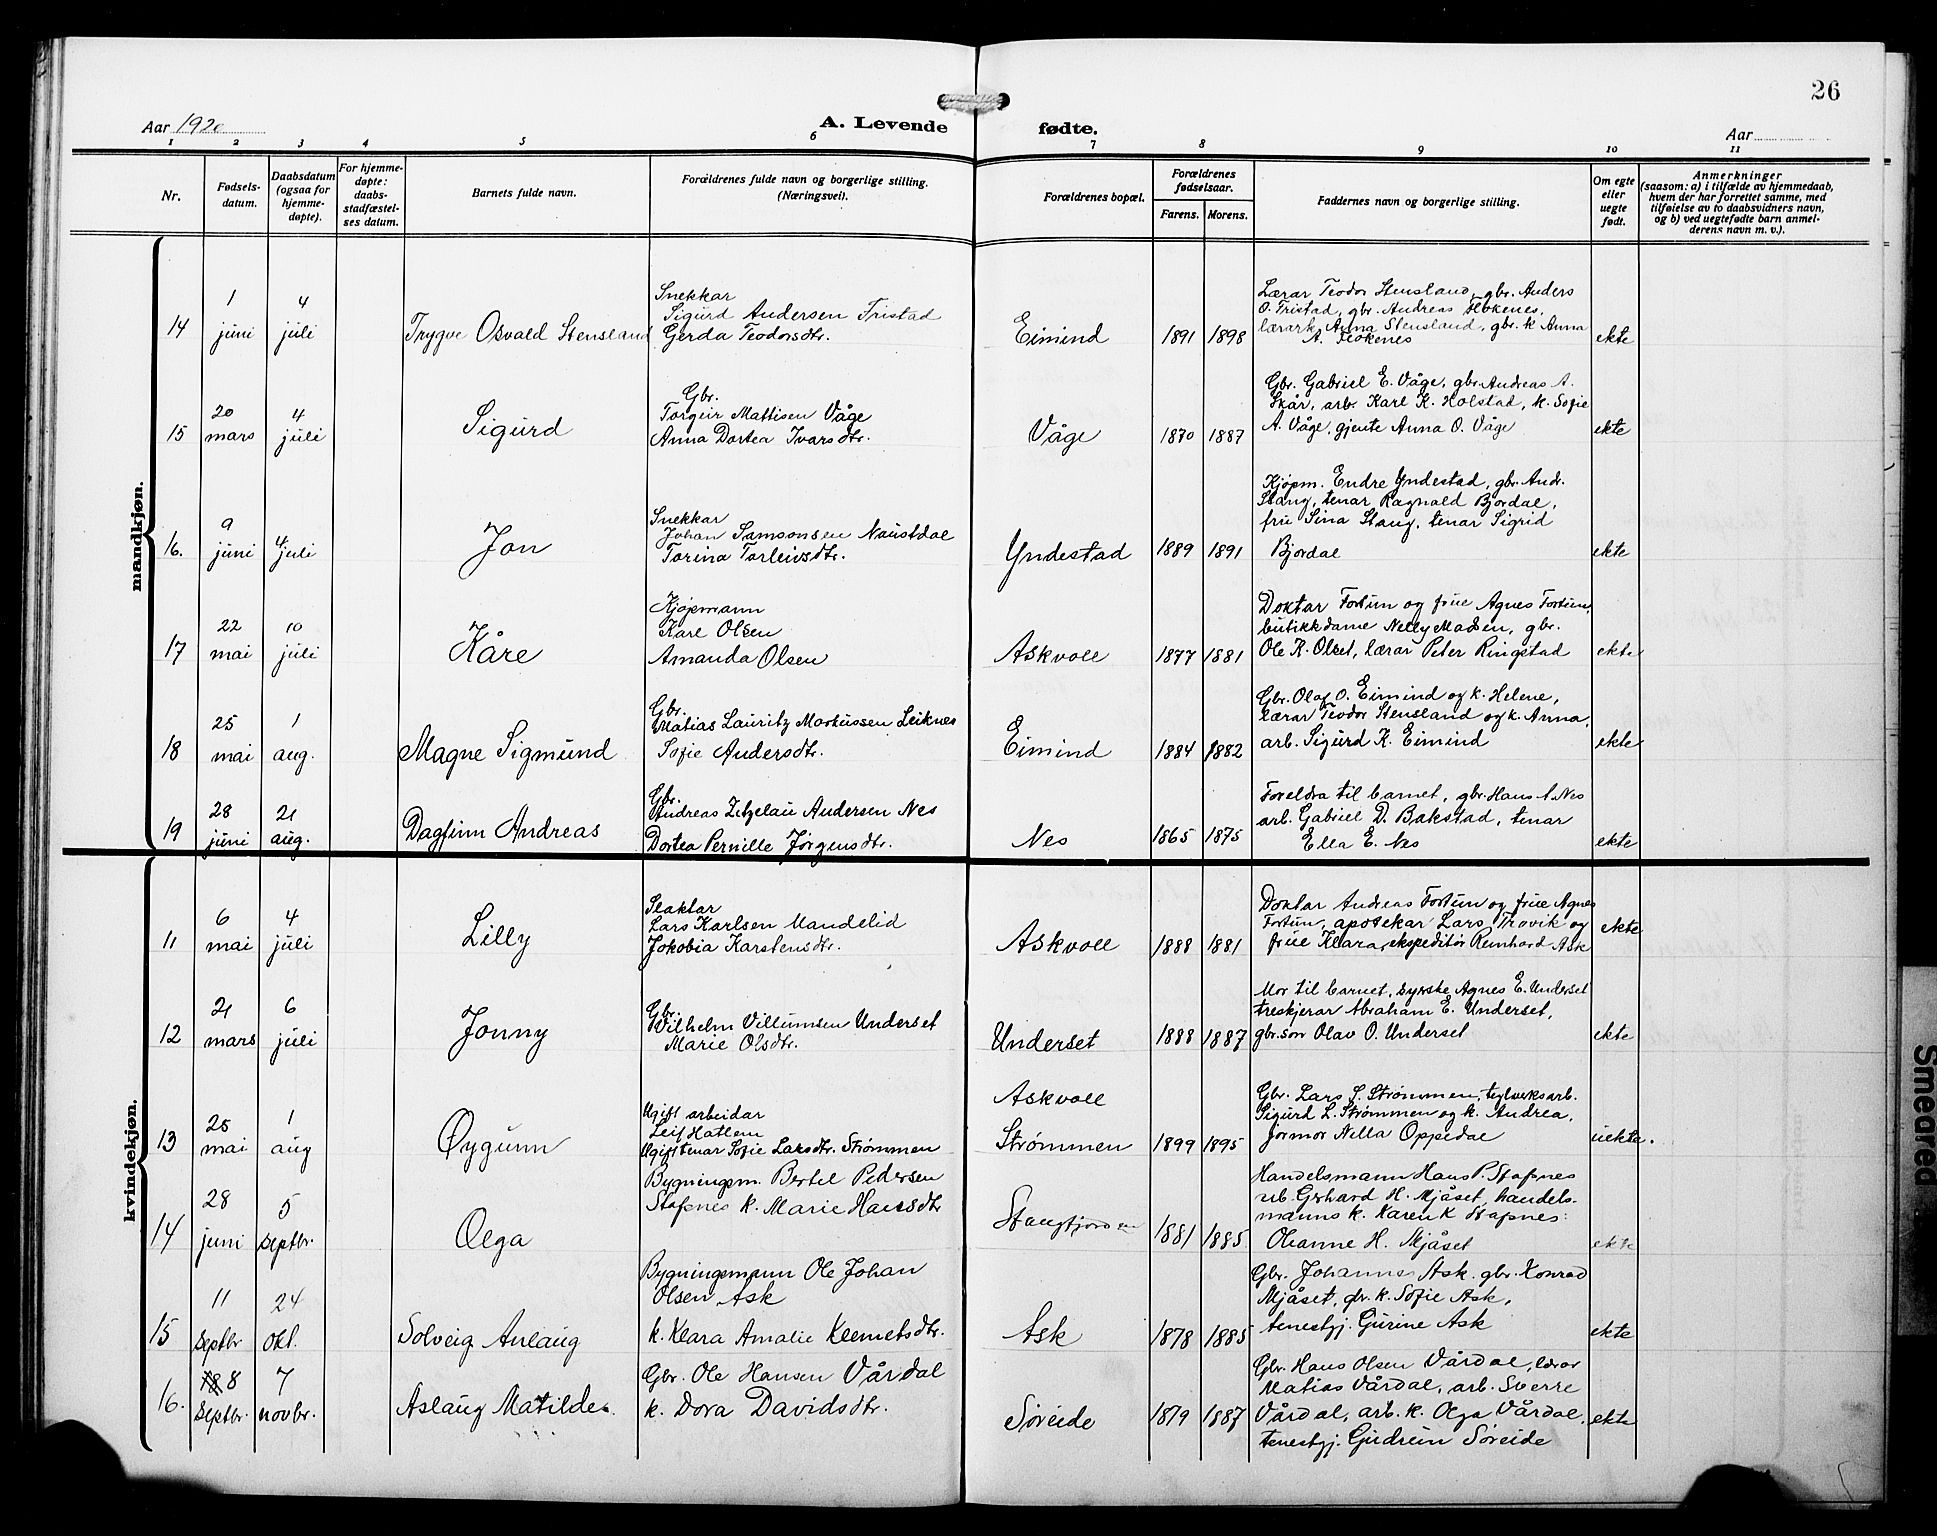 26
Aar 1920
A. Levende fødte.
Aar
1 2 3 4 5 6 7 8 9 10 11
Nr.
Fødsels-
datum.
Daabsdatum
(ogsaa for
hjemme-
døpte).
For hjemme-
døpte:
daabs-
stadfæstel-
ses datum.
Barnets fulde navn.
Forældrenes fulde navn og borgerlige stilling.
(Næringsvei).
Forældrenes bopæl.
Forældrenes
fødselsaar.
Farens. Morens.
Faddernes navn og borgerlige stilling.
Om egte
eller
uegte
født.
Anmerkninger
(saasom: a) i tilfælde av hjemmedaab,
hvem der har forrettet samme, med
tilføielse av to daabsvidners navn,
og b) ved uegtefødte barn anmel-
derens navn m. v.).
mandkjøn.
14
1
juni
4
juli
Trygve Osvald Stensland
Snekkar
Sigurd Andersen Tristad
Gerda Teodorsdtr.
Eimind
1891 1898
Lærar Teodor Stensland, gbr. Anders
O. Tristad, gbr. Andreas Flokenes,
lærark. Anna Stensland, gbr. k Anna
A. Flokenes
ekte
15
20
mars
4
juli
Sigurd
Gbr.
Torgeir Mattisen Våge
Anna Dortea Ivarsdtr.
Våge
1870 1887
Gbr. Gabriel E. Våge, gbr. Andreas A.
Skår, arb. Karl K. Holstad, k. Sofie
A. Våge, gjente Anna O. Våge
ekte
16.
9
juni
4
juli
Jon
Snekkar
Johan Samsonsen Naustdal
Torina Torleivsdtr.
Yndestad
1889 1891
Kjøpm. Endre Yndestad, gbr. Andr.
Stang, tenar Ragnald Bjordal,
fru Sina Stang, tenar Sigrid
Bjordal
ekte
17
22
mai
10
juli
Kåre
Kjøpmann
Karl Olsen
Amanda Olsen
Askvoll
1877 1881
Doktar Fortun og frue Agnes Fortun,
butikkdame Nelly Madsen, gbr.
Ole K. Olset, lærar Peter Ringstad
ekte
18
25
mai
1
aug.
Magne Sigmund
Gbr.
Matias Lauritz Markussen Leiknes
Sofie Andersdtr.
Eimind
1884 1882
Gbr. Olaf O. Eimind og k. Helene,
lærar Teodor Stensland og k. Anna,
arb. Sigurd K. Eimind
ekte
19
28
juni
21
aug.
Dagfinn Andreas
Gbr.
Andreas Zitzelau Andersen Nes
Dortea Pernille Jørgensdtr.
Nes
1865 1875
Foreldra til barnet, gbr. Hans A. Nes
arb. Gabriel D. Bakstad, tenar
Ella E. Nes
ekte
kvindekjøn.
11
6
mai
4
juli
Lilly
Slaktar
Lars Karlsen Mandelid
Jokobia Karstensdtr.
Askvoll
1888 1881
Doktar Andreas Fortun og frue Agnes
Fortun, apotekar Lars Trovik og
frue Klara, ekspeditør Reinhard Ask
ekte
12
21
mars
6
juli
Jonny
Gbr.
Vilhelm Villumsen Underset
Marie Olsdtr.
Underset
1888 1887
Mor til barnet, syrske Agnes E. Underset
treskjerar Abraham E. Underset,
gbr. son Olav O. Underset
ekte
13
25
mai
1
aug
Øygunn
Ugift arbeidar
Leif Hatlem
Ugift tenar Sofie Larsdtr. Strømmen
Askvoll
Strømmen
1899 1895
Gbr. Lars S. Strømmen, teglverksarb.
Sigurd L. Strømmen og k. Andrea,
jormor Nilla Oppedal
uekte.
14
28
juni
5
septbr.
Olga
Bygningsm. Bertel Pedersen
Stafnes k. Marie Hansdtr
Stangfjorden
1881 1885
Handelsmann Hans P. Stafnes
ub. Gerhard H. Mjåset, handels-
manns k. Karen K Stafnes:
Ohanne H. Mjåset
ekte
15
11
septbr
24
okt.
Solveig Anlaug
Bygningsmann Ole Johan
Olsen Ask
k. Klara Amalie Klemetsdtr.
Ask
1878 1885
Gbr. Johannes Ask. gbr. Konrad
Mjåset, gbr. k. Sofie Ask,
tenestgj. Gurine Ask
ekte
16.
8
septbr.
7
novbr.
Aslaug Matilde.
Gbr. Ole Hansen Vårdal
k. Dora Davidsdtr.
Søreide
1879 1887
Gbr. Hans Olsen Vårdal, lærar
Matias Vårdal, arb. Sverre
Vårdal, arb. k. Olga Vårdal,
tenestgj. Gudrun Søreide
ekte
Smeared